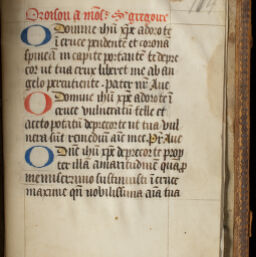 Oroison a mons. S. gregoire
O Domine ihu xpe adoro te
i cruce pendente et corona
spineam in capite portante te depre
cor ut tua crux liberet me ab an
gelo percutiente. Pater nr Aue
O Domine ihu xpe adoro te i
cruce vulneratum felle et
aceto potatum deprecor te ut tua vul
nera sint remedium aie mee. Pr Aue
O Dne ihu xpe deprecor te prop
ter illa amaritudine qua p
me miserrimo sustinuisti i cruce
maxime qn nobilissima aia tua